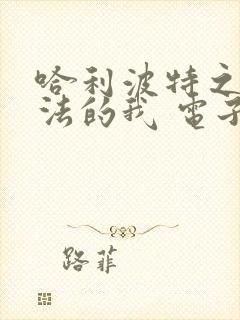 哈利波特之
法的我 電子
路菲